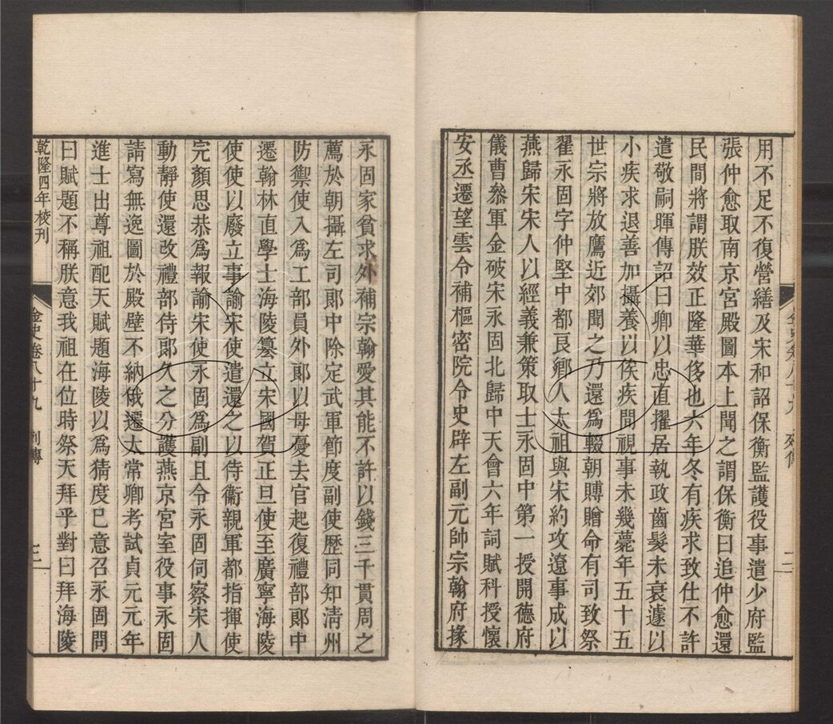 用不足不復營繕及宋和詔保衡監護役事遣少府監
張仲愈取南京宮殿圖本上聞之謂保衡曰追仲愈還
民間將謂朕效正隆華侈也六年冬有疾求致仕不許
遣敬嗣暉傳詔曰卿以忠直擢居執政齒髮未衰遽以
小疾求退善加攝養以俟疾間視事未幾薨年五十五
世宗將放鷹近郊聞之乃還為輟朝賻贈命有司致祭
翟永固字仲堅中都良鄉人太祖與宋約攻遼事成以
燕歸宋宋人以經義兼策取士永固中第一授開德府
儀曹叅軍金破宋永固北歸中天會六年詞賦科授懷
安丞遷望雲令補樞密院令史辟左副元帥宗翰府掾
永固家貧求外補宗翰愛其能不許以錢三千貫周之
薦於朝攝左司郎中除定武軍節度副使歷同知清州
防禦使入爲工部員外郎以母憂去官起復禮部郎中
遷翰林直學士海陵簒立宋國賀正旦使至廣寧海陵
使使以廢立事諭宋使遣還之以侍衞親軍都指揮使
完顏思恭爲報諭宋使永固爲副且令永固伺察宋人
動靜使還改禮部侍郎久之分護燕京宮室役事永固
請寫無逸圖於殿壁不納俄遷太常卿考試貞元元年
進士出尊祖配天賦題海陵以爲猜度巳意召永固問
曰賦題不稱朕意我祖在位時祭天拜乎對曰拜海陵
乾隆四年校刊
金史卷八十九 列傳 三